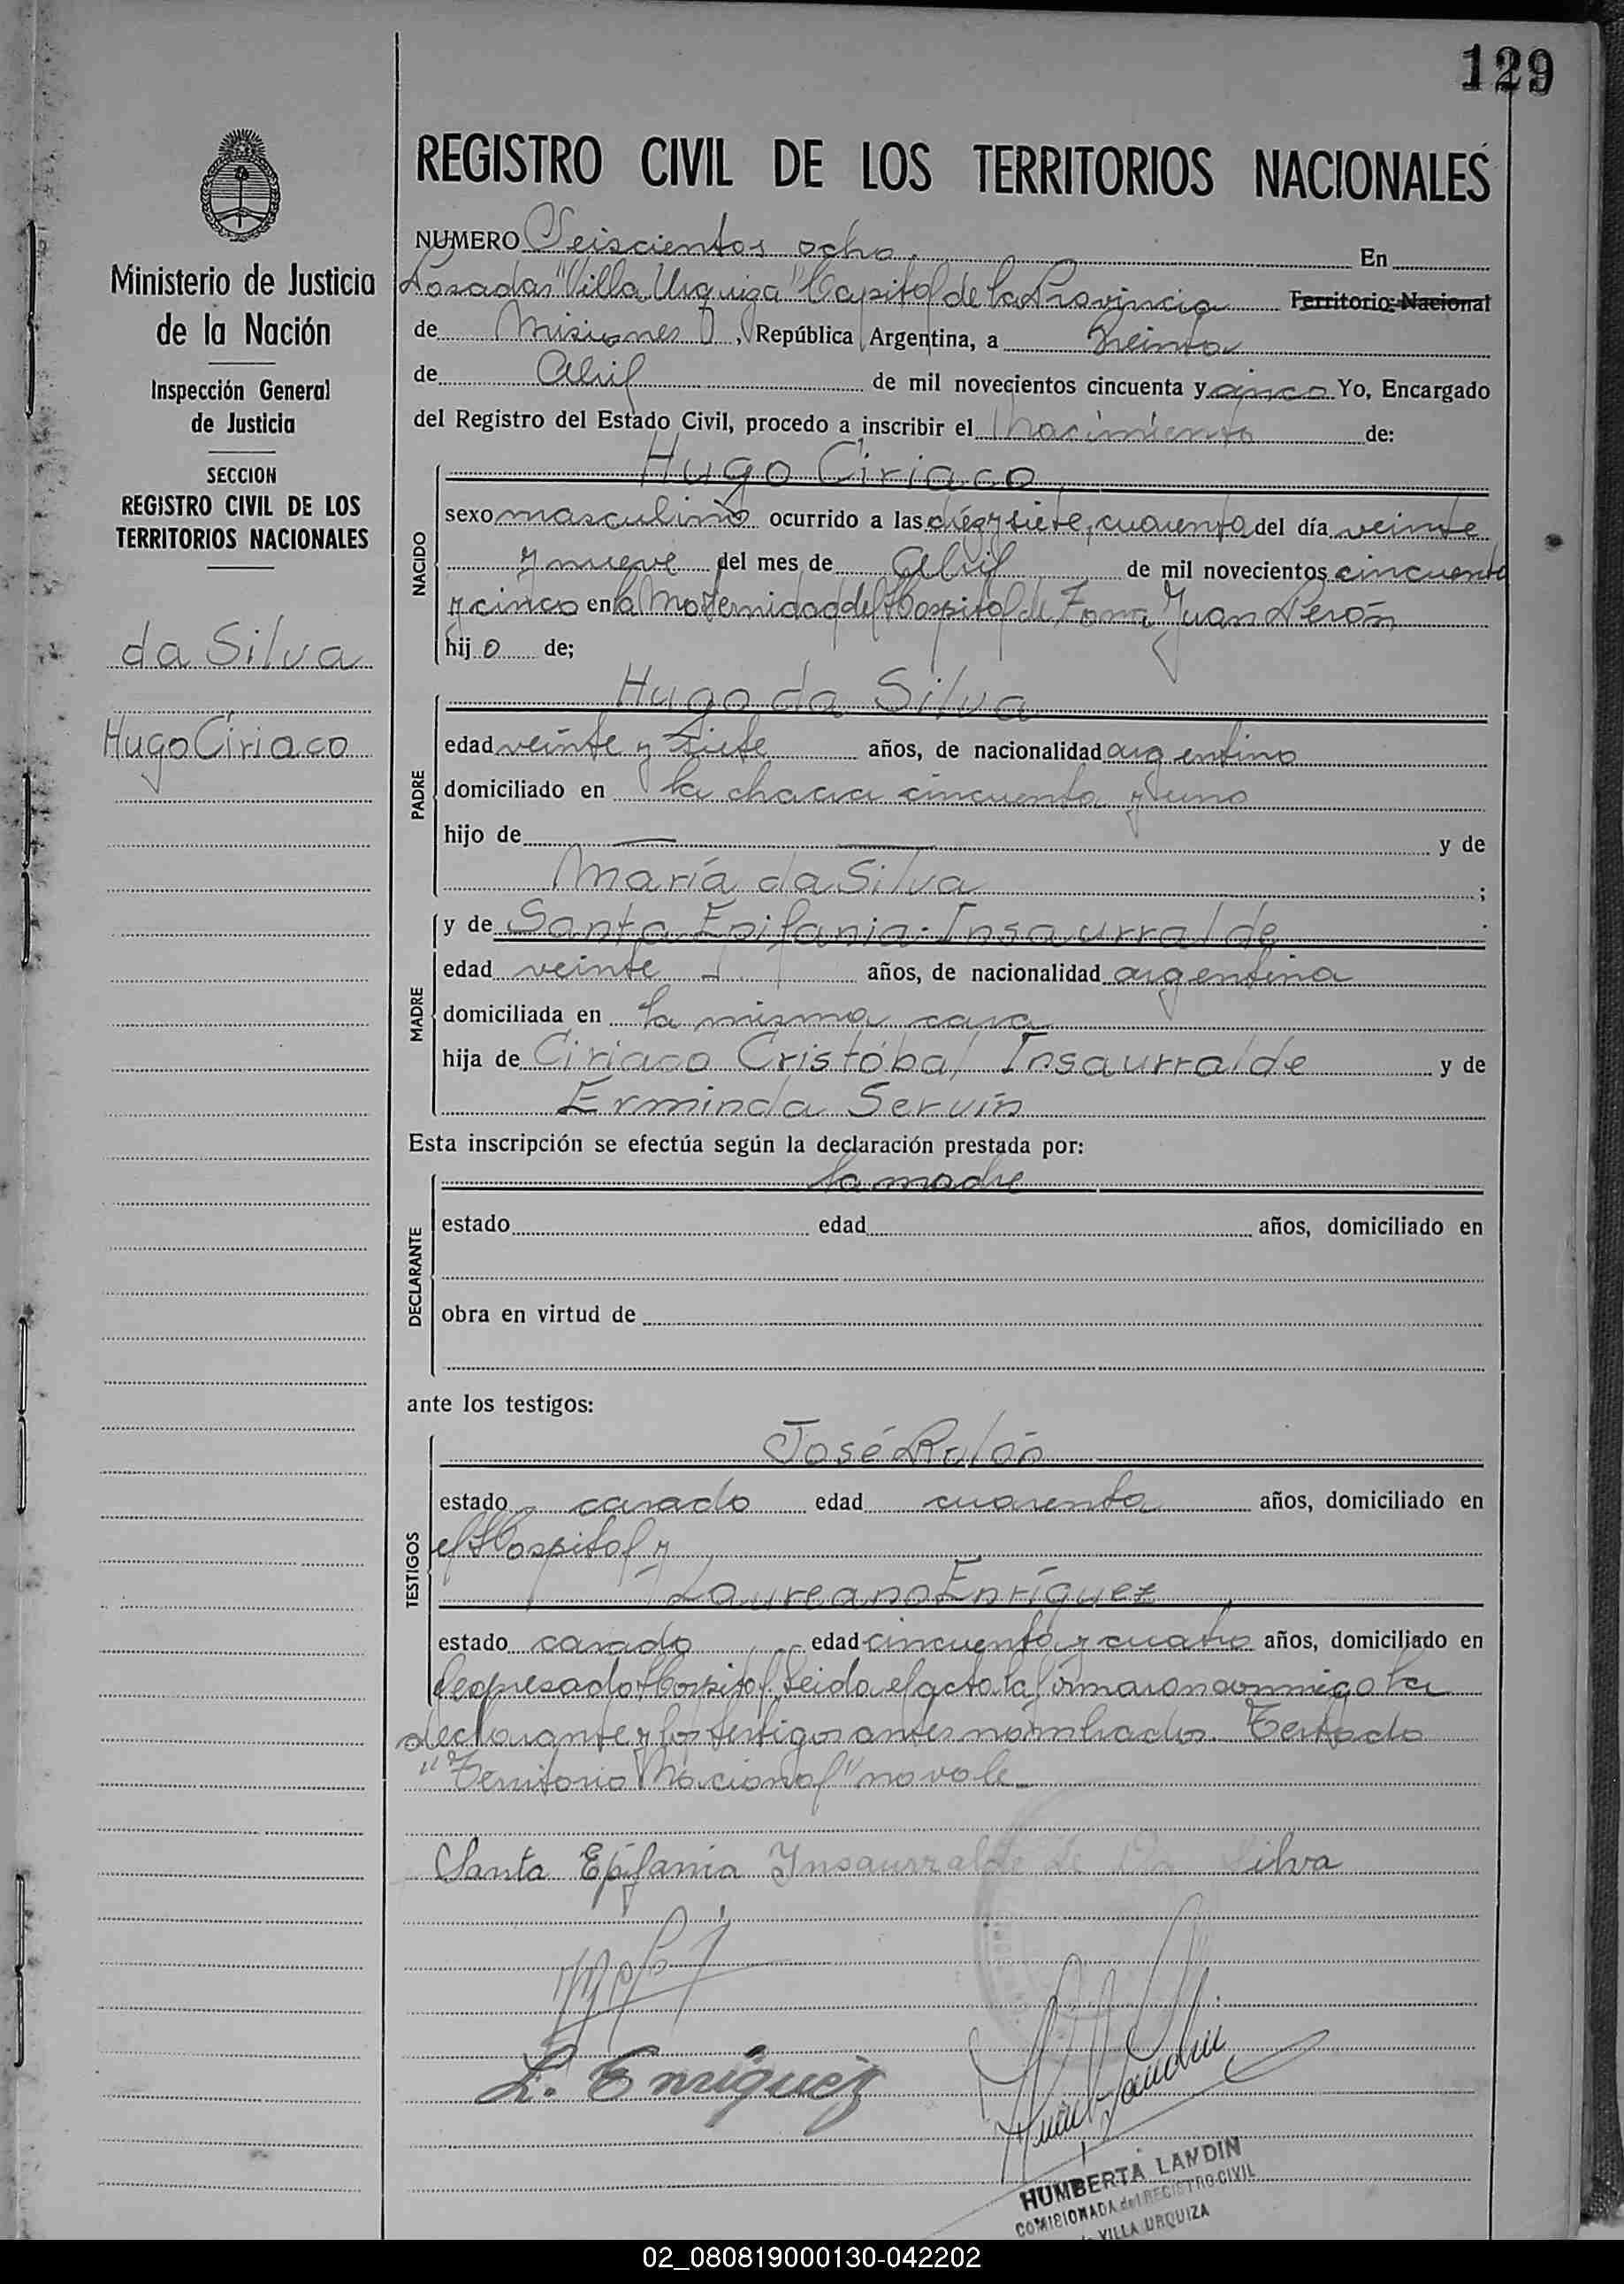 129
REGISTRO CIVIL DE LOS TERRITORIOS NACIONALES
Ministerio de Justicia
de la Nación
Inspección General
de Justicia
SECCION
REGISTRO CIVIL DE LOS
TERRITORIOS NACIONALES
da Silva
Hugo Ciriaco
NUMERO Seiscientos ocho En
Posadas "Villa Urquiza" Capital de la Provincia Territorio Nacional
de Misiones, República Argentina, a Treinta
de Abril de mil novecientos cincuenta y cinco Yo, Encargado
del Registro del Estado Civil, procedo a inscribir el nacimiento de:
NACIDO
Hugo Ciriaco
sexo masculino ocurrido a las diez y siete, cuarenta del día veinte
y nueve del mes de Abril de mil novecientos cincuenta
y cinco en la Maternidad del Hospital de Zona Juan Perón
hijo de;
PADRE
Hugo da Silva
edad veinte y siete años, de nacionalidad argentino
domiciliado en la chacra cincuenta y uno
hijo de y de
María da Silva ;
MADRE
y de Santa Epifania Insaurralde
edad veinte años, de nacionalidad argentina
domiciliada en la misma casa
hija de Ciriaco Cristóbal Insaurralde y de
Erminda Servín
Esta inscripción se efectúa según la declaración prestada por:
DECLARANTE
la madre
estado edad años, domiciliado en
obra en virtud de
ante los testigos:
TESTIGOS
José Rolón
estado casado edad cuarenta años, domiciliado en
el Hospital y
Laureano Enríguez
estado casado edad cincuenta y cuatro años, domiciliado en
el expresado Hospital. Leida el acta la firmaron conmigo la
declarante y los testigos antes nombrados. Testado
"Territorio Nacional" no vale
Santa Epifania Insaurralde de Da Silva
L. Enriguez
HUMBERTA LANDIN
COMISIONADA del REGISTRO CIVIL
VILLA URQUIZA
02_080819000130-042202